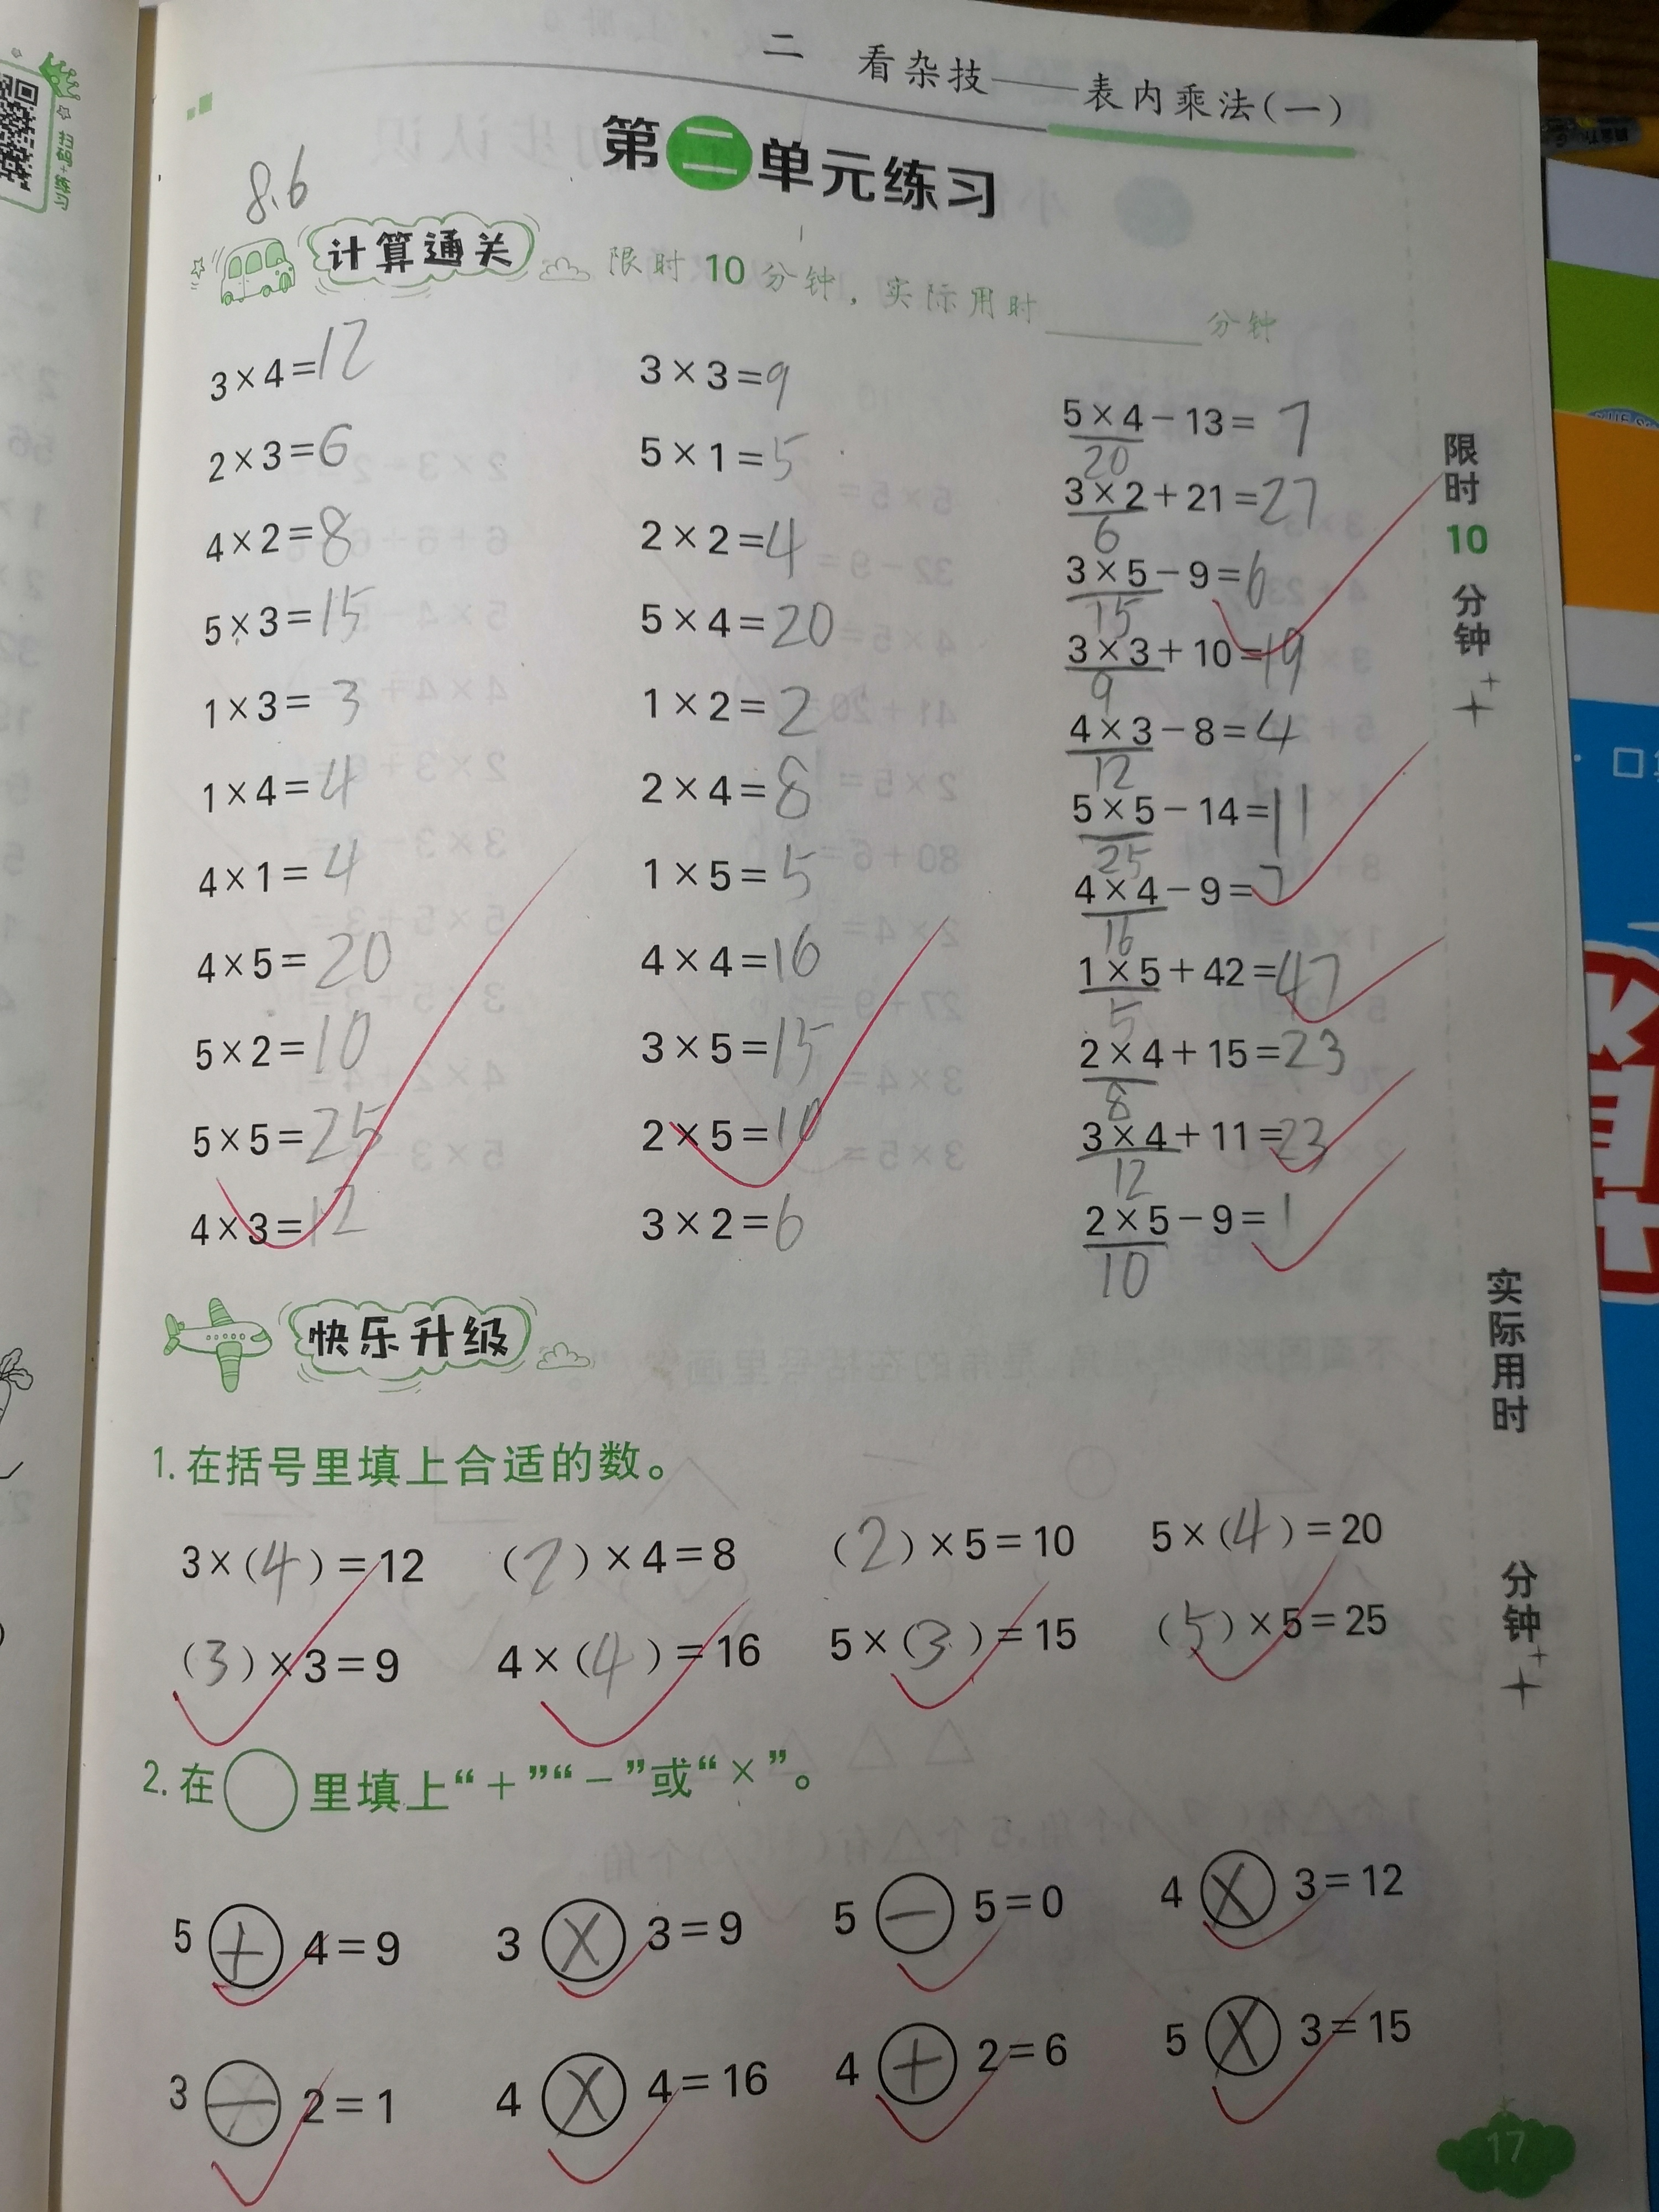 二 看杂技——表内乘法(一)
第二单元练习
8.6
计算通关 限时10分钟，实际用时 分钟
3×4=12
2×3=6
4×2=8
5×3=15
1×3=3
1×4=4
4×1=4
4×5=20
5×2=10
5×5=25
4×3=12
3×3=9
5×1=5
2×2=4
5×4=20
1×2=2
2×4=8
1×5=5
4×4=16
3×5=15
2×5=10
3×2=6
5×4-13=7
20
3×2+21=27
6
3×5-9=6
15
3×3+10=19
9
4×3-8=4
12
5×5-14=11
25
4×4-9=7
16
1×5+42=47
5
2×4+15=23
8
3×4+11=23
12
2×5-9=1
10
快乐升级
1.在括号里填上合适的数。
3×(4)=12 (2)×4=8 (2)×5=10 5×(4)=20
(3)×3=9 4×(4)=16 5×(3)=15 (5)×5=25
2.在○里填上“+”“-”或“×”。
5+4=9 3×3=9 5-5=0 4×3=12
3-2=1 4×4=16 4+2=6 5×3=15
限时10分钟
实际用时 分钟
17
扫码+练习